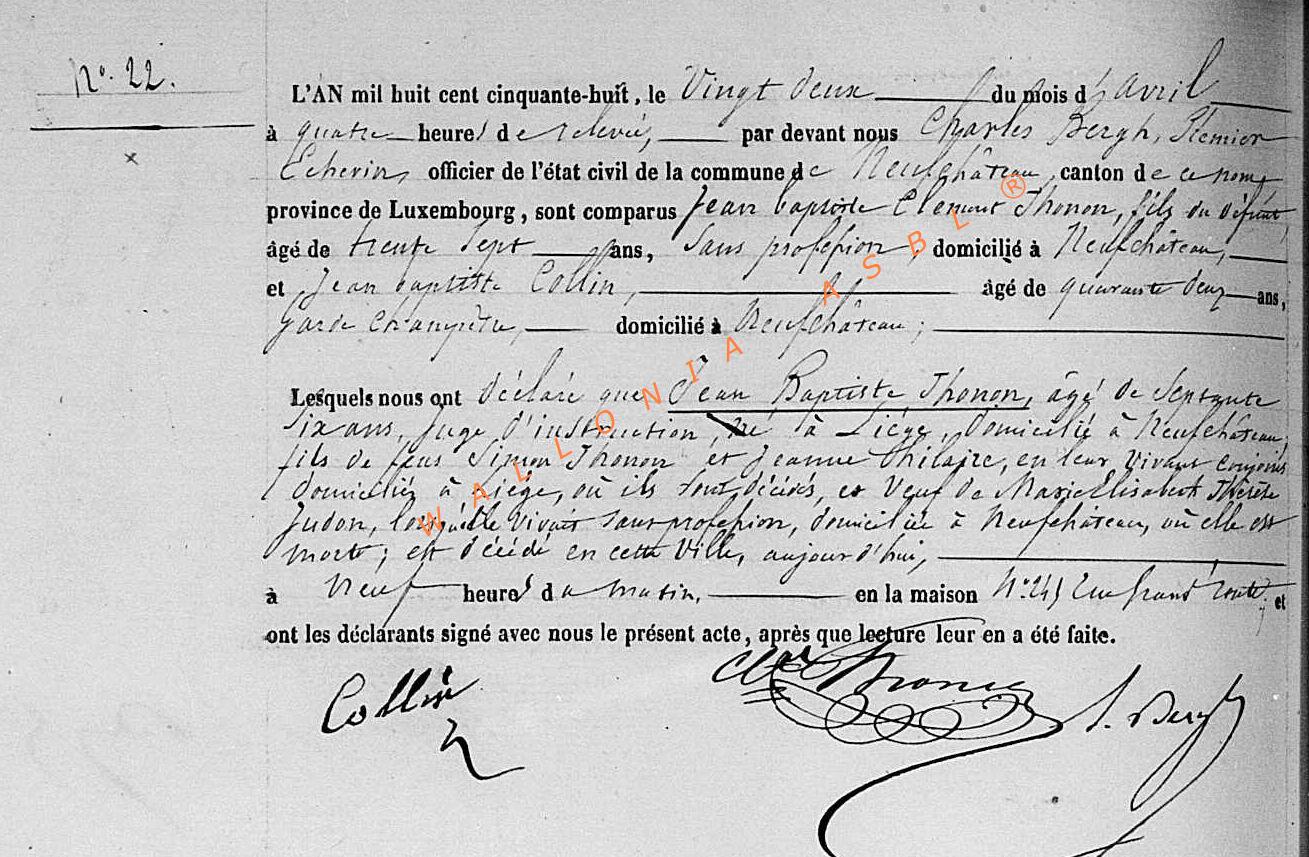 N° 22.
L'AN mil huit cent cinquante-huit, le Vingt deux du mois d'avril
à quatre heures de relevée, par devant nous Charles Bergh, Premier
Echevin, officier de l'état civil de la commune de Neufchâteau, canton de ce nom,
province de Luxembourg, sont comparus Jean baptiste Clément Thonon, fils du défunt,
âgé de trente sept ans, Sans profession, domicilié à Neufchâteau,
et Jean baptiste Collin, âgé de quarante deux ans,
garde champêtre, domicilié à Neufchâteau;
Lesquels nous ont déclaré que Jean Baptiste Thonon, âgé de Septante
Six ans, Juge d'instruction, né à Liége, domicilié à Neufchâteau,
fils de feus Simon Thonon et Jeanne Hilaire, en leur vivant conjoints
domiciliés à Liége, où ils sont décédés, et Veuf de Marie Elisabeth Thérèse
Judon, laquelle vivait sans profession, domiciliée à Neufchâteau, où elle est
morte; est décédé en cette Ville, aujourd'hui,
à neuf heures du matin, en la maison N° 245 rue grand route; et
ont les déclarants signé avec nous le présent acte, après que lecture leur en a été faite.
Collin
Thonon
Bergh
WALLONIA ASBL ®